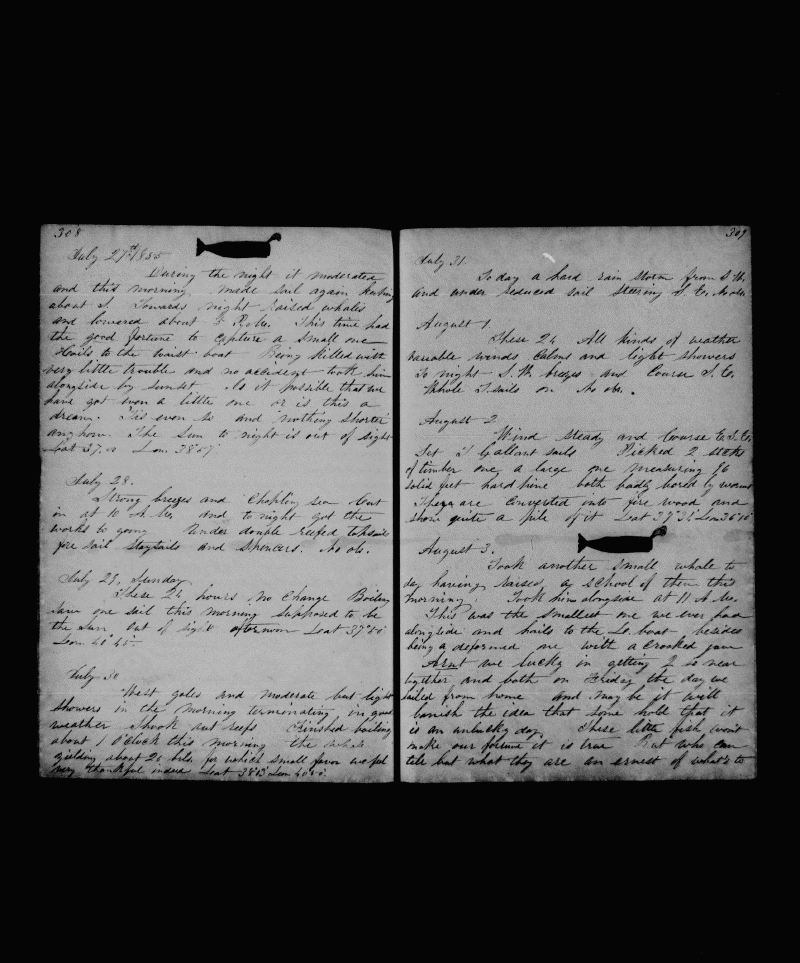 308
July 27th 1855
During the night it moderated
and this morning made sail again heading
about S. Towards night raised whales
and lowered about 5 P.M. This time had
the good fortune to capture a small one
Hails to the waist boat Being killed with
very little trouble and no accident took him
alongside by sunset. Is it possible that we
have got even a little one or is this a
dream. Tis even so and nothing shorter
any how. The Sun to night is out of sight
Lat 37.
July 28.
Strong breezes and Chopling sea Cut
in at 10 A.M. and to night got the
works to going Under double reefed topsails
fore sail Staysails and Spencers. No ob.
July 29, Sunday
These 24 hours no change Boiling
Saw one sail this morning supposed to be
the Sun out of sight afternoon Lat 37°50'
Lon 40°45'
July 30
West gales and moderate but light
showers in the morning terminating in good
weather Shook out reefs Finished boiling
about 1 O'Clock this morning the whale
yielding about 20 bbls for which small favor we feel
very thankful indeed Lat 38
309
July 31
To day a hard rain storm from S.W.
and under reduced sail Steering S.E. No ob.
August 1.
These 24 All kinds of weather
variable winds Calms and light showers
To night S.W. breezes and Course S.E.
Whole T.sails on No ob.
August 2
Wind steady and Course E.S.E.
Set T Gallant sails Picked 2 sticks
of timber one a large one measuring 96
solid feet hard pine both badly bored by worms
These are converted into fire wood and
shows quite a pile of it Lat 37°31' Lon 36°10'
August 3.
Took another small whale to
day having raised a school of them this
morning. Took him alongside at 11 A.M.
This was the smallest one we ever had
alongside and hails to the boat besides
being a deformed one with a crooked jaw
Arnt we lucky in getting 2 so near
together and both on Friday the day we
sailed from home and may be it will
banish the idea that some hold that it
is an unlucky day. These little fish wont
make our fortune it is true But who can
tell but what they are an ernest of what's to